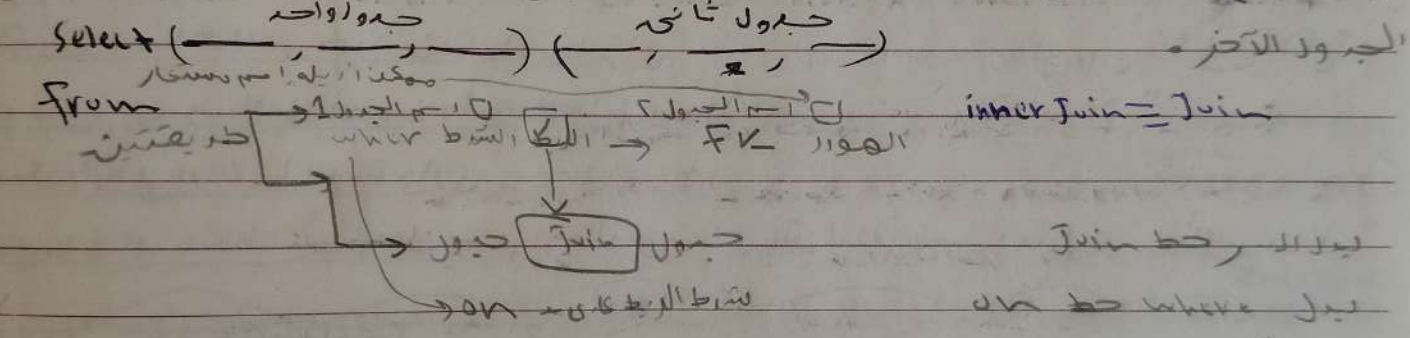 جدول واحد جدول ثاني
Select (—, —, —) (—, —, —) الجدول الآخر.
ممكن اسم مستعار
from اسم الجدول 1 , اسم الجدول 2 inner Join = Join
طريقتين where الشرط الربط → FK
جدول Join جدول بدال , حط Join
on شرط الربط بدل where حط on